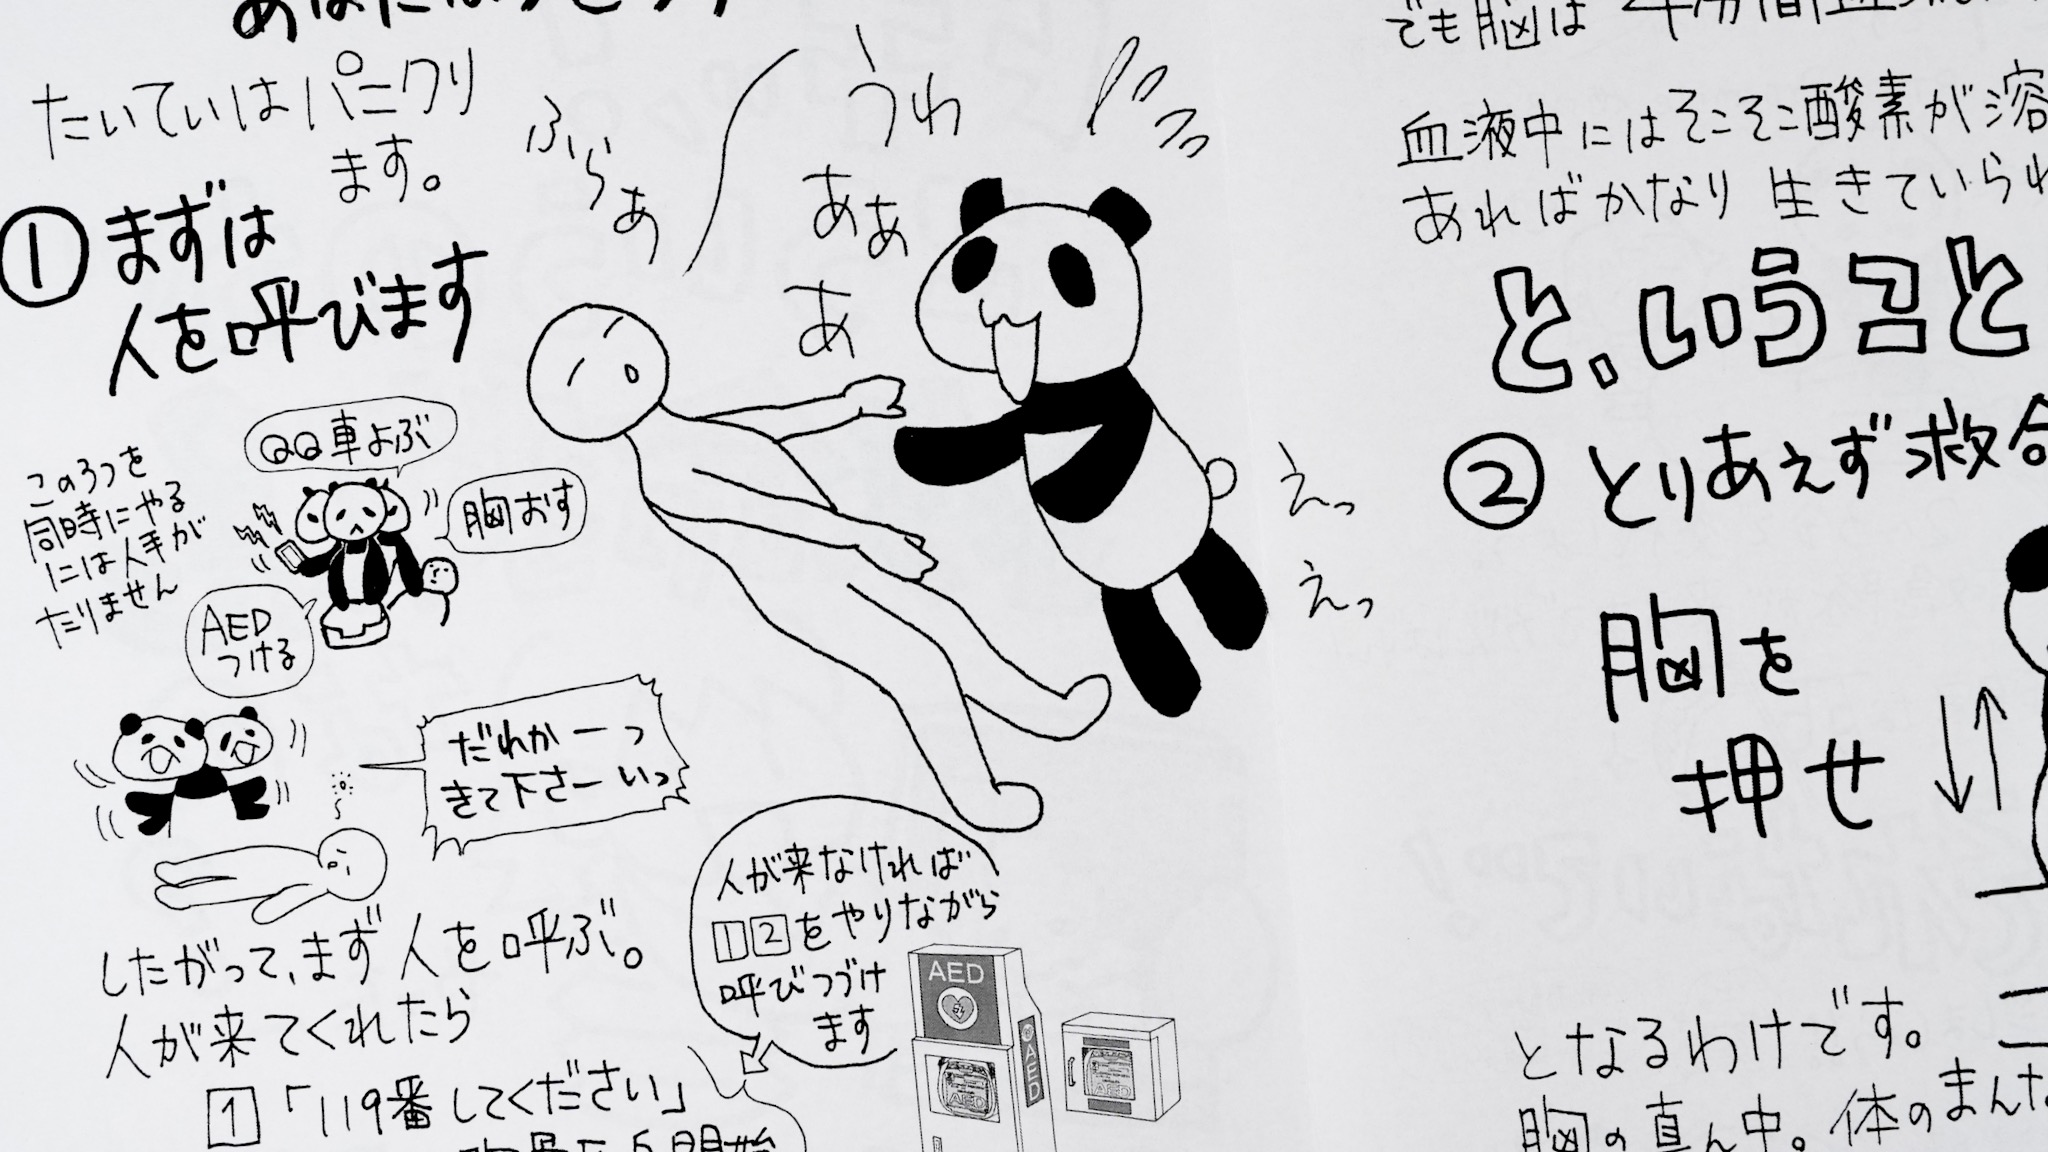 たいていはパニクり
ます。
① まずは
人を呼びます
ふらぁ
うわ
ああ
あ
えっ
えっ
QQ車よぶ
胸おす
AED
つける
この3つを
同時にやる
には人手が
たりません
だれかーっ
きて下さーいっ
したがって、まず人を呼ぶ。
人が来てくれたら
1 「119番してください」
人が来なければ
1 2 をやりながら
呼びつづけ
ます
AED
AED
AED
でも脳は
血液中にはそこそこ酸素が溶
あればかなり生きていられ
と、いうこと
② とりあえず救命
胸を
押せ
となるわけです。
胸の真ん中。体のまんな